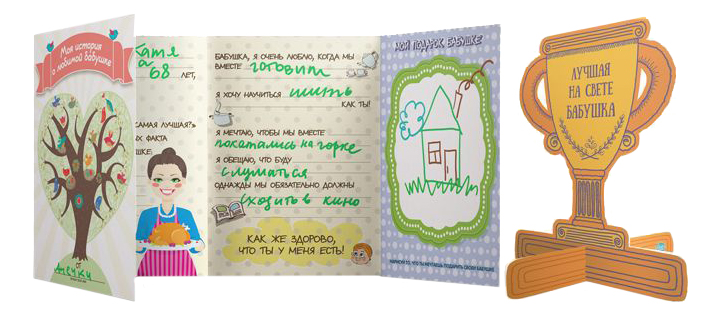 Моя история
о любимой бабушке
от
Анечки
Катя
68 лет,
САМАЯ ЛУЧШАЯ?»
ФАКТА
БАБУШКА, Я ОЧЕНЬ ЛЮБЛЮ, КОГДА МЫ
ВМЕСТЕ готовим
Я ХОЧУ НАУЧИТЬСЯ шить
КАК ТЫ!
Я МЕЧТАЮ, ЧТОБЫ МЫ ВМЕСТЕ
покатались на горке
Я ОБЕЩАЮ, ЧТО БУДУ
слушаться
ОДНАЖДЫ МЫ ОБЯЗАТЕЛЬНО ДОЛЖНЫ
сходить в кино
КАК ЖЕ ЗДОРОВО,
ЧТО ТЫ У МЕНЯ ЕСТЬ!
МОЙ ПОДАРОК БАБУШКЕ
НАРИСУЙ ТО, ЧТО ТЫ МЕЧТАЕШЬ ПОДАРИТЬ СВОЕЙ БАБУШКЕ
ЛУЧШАЯ
НА СВЕТЕ
БАБУШКА